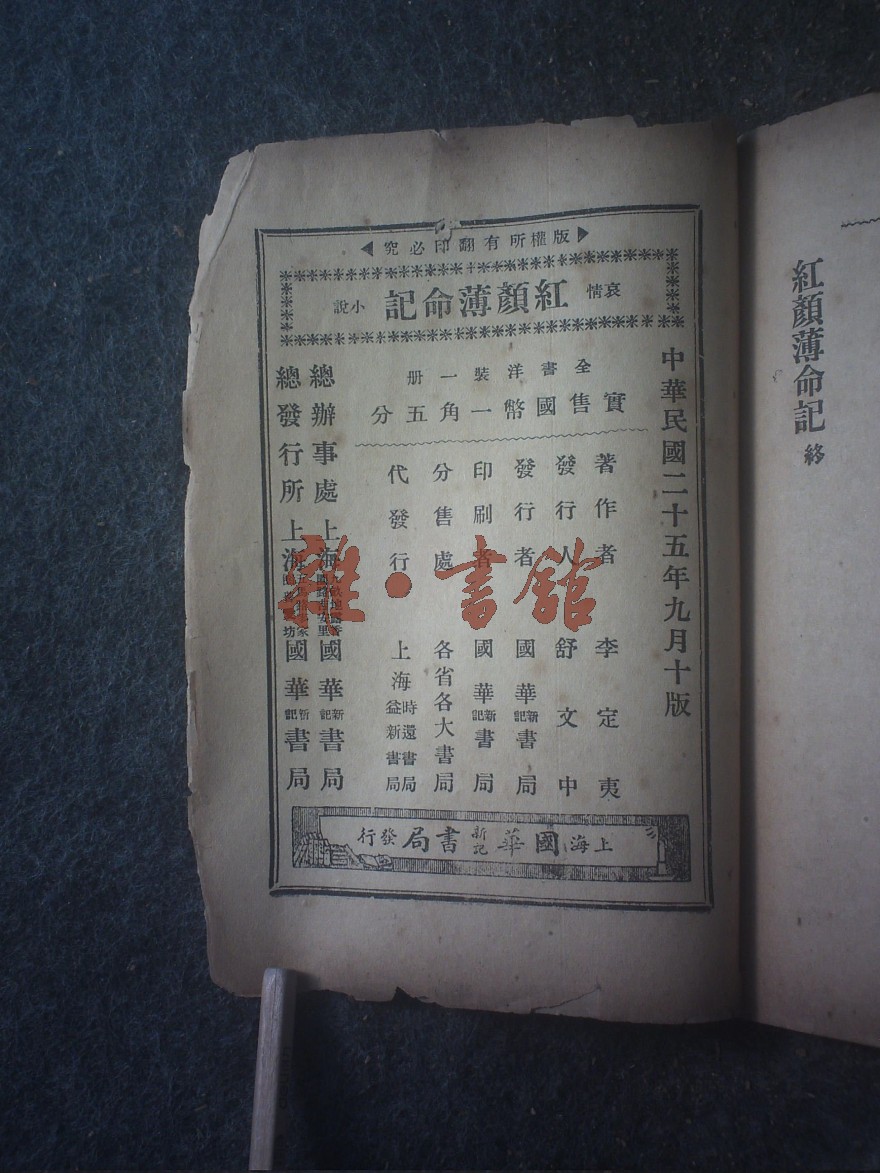 紅顏薄命記 終
版權所有翻印必究
哀情 紅顏薄命記 小說
中華民國二十五年九月十版
全書洋裝一册
實售國幣一角五分
著作者 李定夷
發行人 舒文中
發行者 國華新記書局
印刷者 國華新記書局
分售處 各省各大書局
代發行 上海時還書局 益新書局
總辦事處 上海 國華新記書局
總發行所 上海 國華新記書局
上海國華新記書局發行
雜·書館